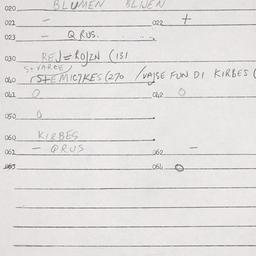 020 BLUMEN BLIJEN
021 — 022 +
023 — QRUS.
030 REJ=ROJZN (131
040 STEMICIKES (270 / VAJSE FUN DI KIRBES (
041 0 042 0
050 0
060 KIRBES
061 — QRUS 062 —
063 064 0